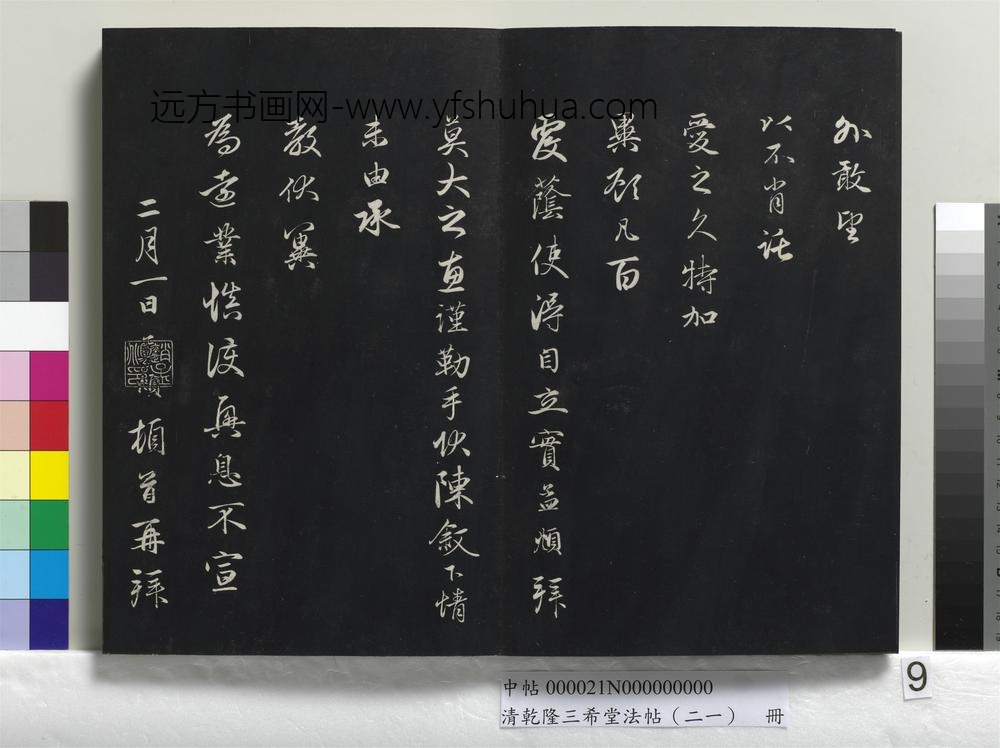 外敢望
以不肖託
愛之久特加
藥石凡百
覆蔭使得自立實孟頫拜
莫大之惠謹勒手狀陳敘下情
未由承
教伏冀
為遠業慎護興息不宣
二月一日
頓首再拜
远方书画网-www.yfshuhua.com
中帖 000021N000000000
清乾隆三希堂法帖（二一） 冊
9